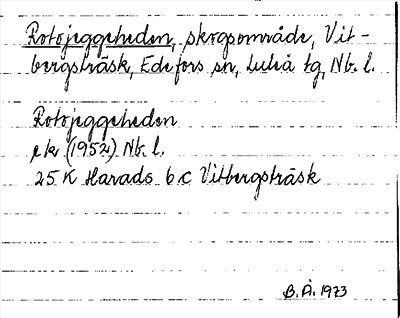 Rotojeggeheden, skogsområde, Vit-
bergsträsk, Edefors sn, Luleå tg, Nb. l.
Rotojeggeheden
ek (1952) Nb. l.
25 K Harads 6 c Vitbergsträsk
B. Å. 1973